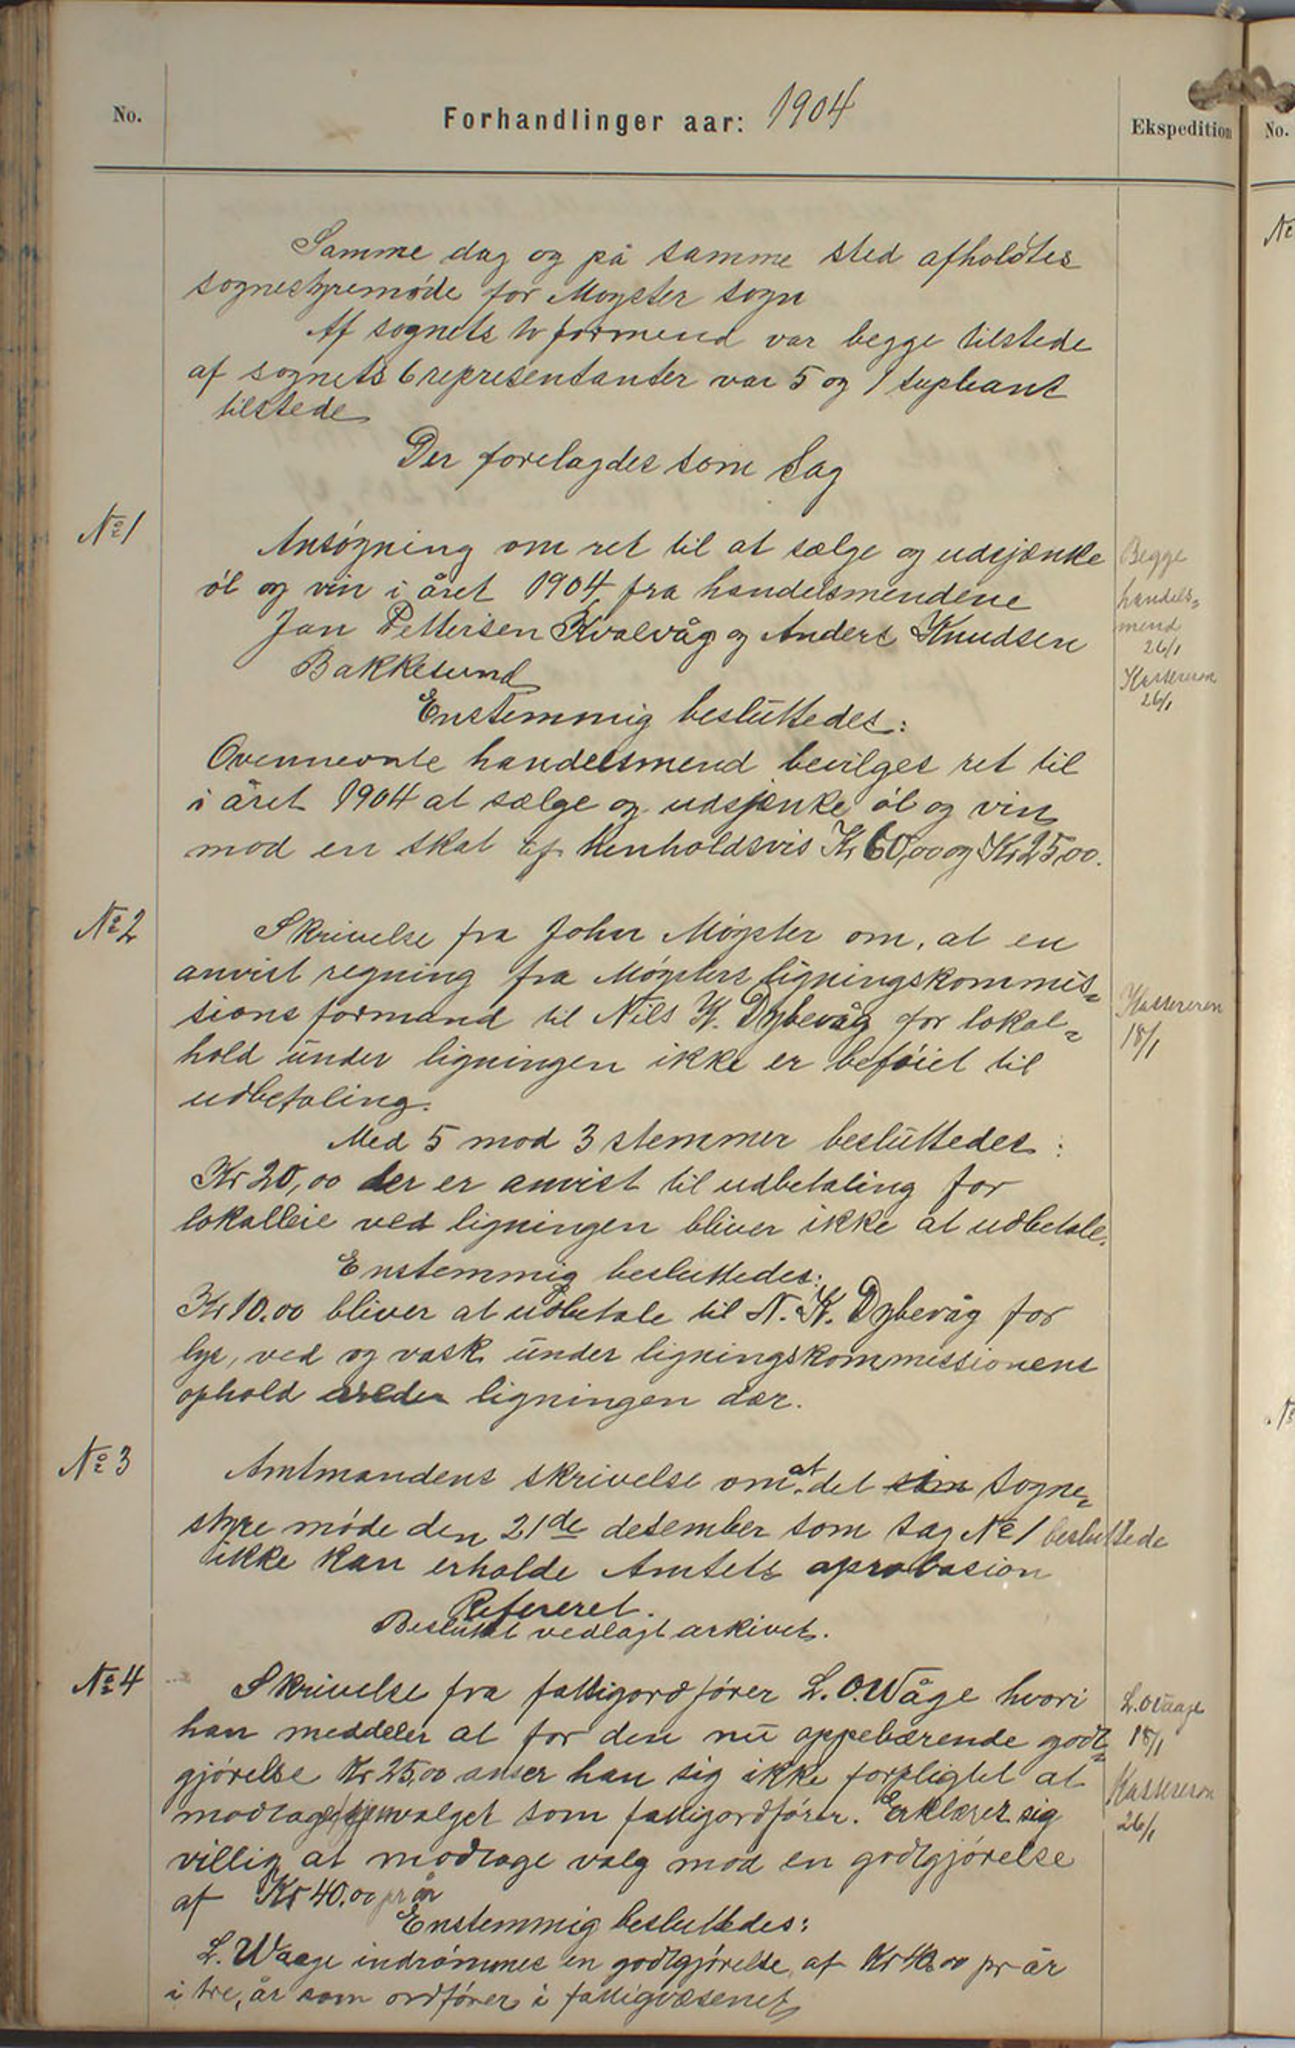 No.
Forhandlinger aar: 1904
Ekspedition
No.
Samme dag og på samme sted afholdtes
sognestyremøde for Mogster sogn
Af sognets to formend var begge tilstede
af sognets 6 representanter var 5 og 1 supleant
tilstede
Der forelagdes som Sag
No 1
Ansøgning om ret til at sælge og udsjænke
øl og vin i året 1904, fra handelsmendene
Jan Pettersen Kvalvåg og Anders Knudsen
Bakkesund
Enstemmig besluttedes:
Ovennevnte handelsmend bevilges ret til
i året 1904 at sælge og udsjenke øl og vin
mod en skat af henholdsvis Kr 60,00 og Kr 25,00.
Begge
handels=
mend
26/1
Kassereren
26/1
No 2
Skrivelse fra John Møgster om, at en
anvist regning fra Møgsters ligningskommis=
sions formand til Nils K. Dybevåg for lokal=
hold under ligningen ikke er beføiet til
udbetaling.
Med 5 mod 3 stemmer besluttedes:
Kr 20,00 der er anvist til udbetaling for
lokalleie ved ligningen bliver ikke at udbetale.
Enstemmig besluttedes:
Kr 10.00 bliver at udbetale til N. K. Dybevåg for
lys, ved og vask under ligningskommissionens
ophold under ligningen der.
Kassereren
18/1
No 3
Amtmandens skrivelse om at det som sogne=
styre møde den 21de desember som sag No 1 besluttede
ikke kan erholde Amtets aprobasion
Refereret.
Besluttet vedlagt arkivet.
No 4
Skrivelse fra fattigordfører L. O. Wåge hvori
han meddeler at for den nu oppebærende godt=
gjørelse Kr 25,00 anser han sig ikke forpligtet at
modtage gjenvalget som fattigordfører. Erklærer sig
villig at modtage valg mod en godtgjørelse
af Kr 40.00 pr år
Enstemmig besluttedes:
L. Waage indrømmes en godtgjørelse af Kr 40.00 pr år
i tre, år som ordfører i fattigvæsenet
L. O. Waage
18/1
Kassereren
26/1